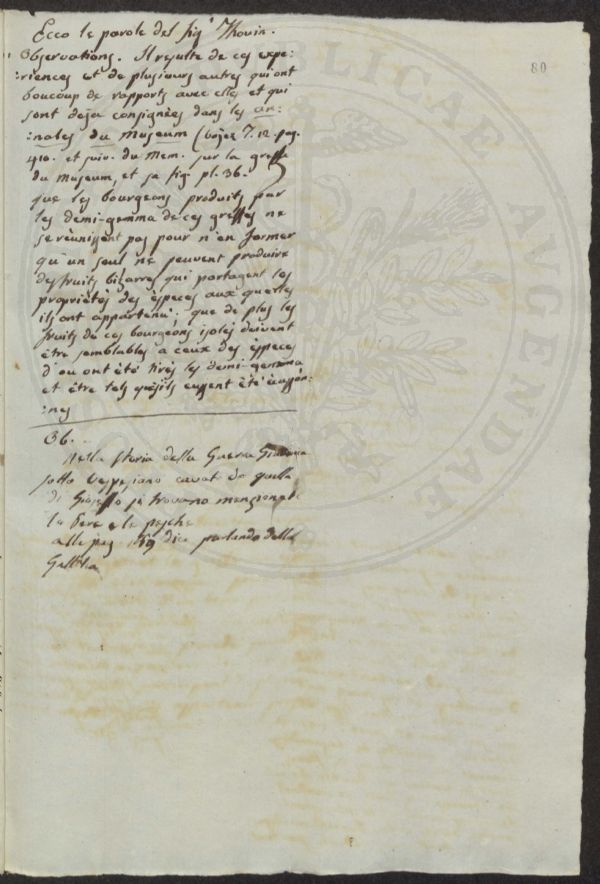 80
Ecco le parole del sigʳ Thouin.
Observations. Il resulte de ces expe:
:riences et de plusieurs autres qui ont
boucoup de rapports avec elles et qui
sont deja consignées dans les an:
:nales du Museum (voyez T. 12. pag.
410. et suiv. du Mem. sur la greffe
du Museum, et sa fig. pl. 36.
que les bourgeons produits par
les demi-gemma de ces greffes ne
se réunissent pas pour n'en former
qu'un seul ne peuvent produire
des fruits bizarres qui partagent les
propriétés des especes aux quelles
ils ont appartenu; que de plus les
fruits de ces bourgeons isolés doivent
être semblables a ceux des especes
d'ou ont été tirés les demi-gemma
et être tels qu'ils eussent été
:nes
36.
Nella storia della Guerra Giudaica
sotto Vespesiano cavat da quella
di Gioseffo si trovano menzionat
la Pere e le pesche
alla pag 189 dice parlando della
Galilea
PUBLICAE AVGENDAE